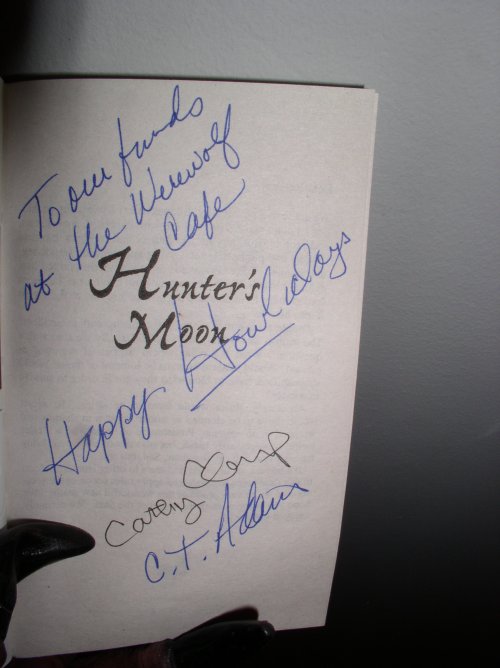 To our friends
at the Werewolf
Cafe
Hunter's
Moon
Happy Howlidays
Cathy Clamp
C.T. Adams